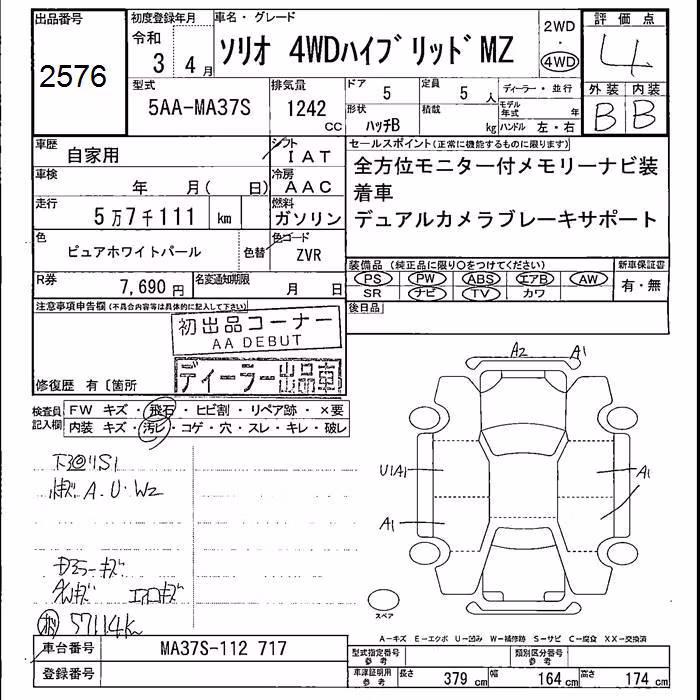 出品番号
2576
初度登録年月
令和
3 4月
車名・グレード
ソリオ 4WDハイブリッドMZ
2WD
4WD
評価点
4
外装 内装
B B
型式
5AA-MA37S
排気量
1242
CC
ドア
5
定員
5 人
形状
ハッチB
積載
kg
ディーラー・並行
モデル年式 年
ハンドル 左・右
車歴
自家用
シフト
IAT
車検
年 月( 日)
冷房
AAC
走行
5万7千111 km
燃料
ガソリン
色
ピュアホワイトパール
色替
色コード
ZVR
R券
7,690円
名変通知期限
月 日
セールスポイント(正常に機能するものに限ります)
全方位モニター付メモリーナビ装
着車
デュアルカメラブレーキサポート
装備品 (純正品に限り○をつけてください)
PS PW ABS エアB AW
SR ナビ TV カワ
新車保証書
有・無
後日品
注意事項申告欄(不具合内容等は具体的に記入して下さい)
初出品コーナー
AA DEBUT
ディーラー出品車
修復歴 有〔箇所
検査員
記入欄
FW キズ・飛石・ヒビ割・リペア跡・×要
内装 キズ・汚レ・コゲ・穴・スレ・キレ・破レ
A2 A1
U1A1
A1
A1
A.U.W2
57114k
スペア
A-キズ E-エクボ U-凹み W-補修跡 S-サビ C-腐食 XX-交換済
車台番号
MA37S-112 717
登録番号
型式指定番号
参考
類別区分番号
参考
車庫証明用
参考
長さ 379 cm
幅 164 cm
高さ 174 cm